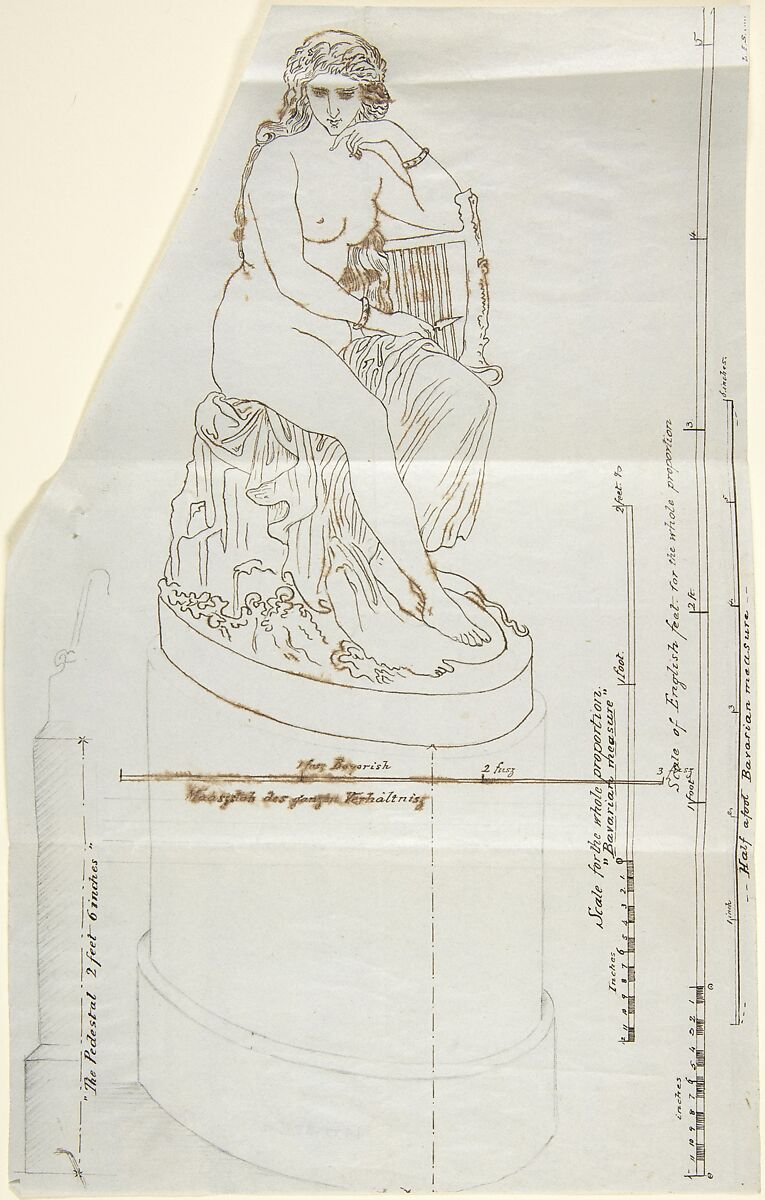 1 fusz Bayerish
2 fusz
3 fusz
Maasstab des ganzen Verhältnisz
"The Pedestal 2 feet 6 inches"
Scale for the whole proportion.
"Bavarian measure"
2 feet
1 foot.
0
1
2
3
4
5
6
7
8
9
10
11
Inches
Scale of English feet for the whole proportion
5
4
3
2 ft
1 foot
0
1
2
3
4
5
6
7
8
9
10
11
inches
-- Half a foot Bavarian measure --
6 inches.
5
4
3
2
1 inch